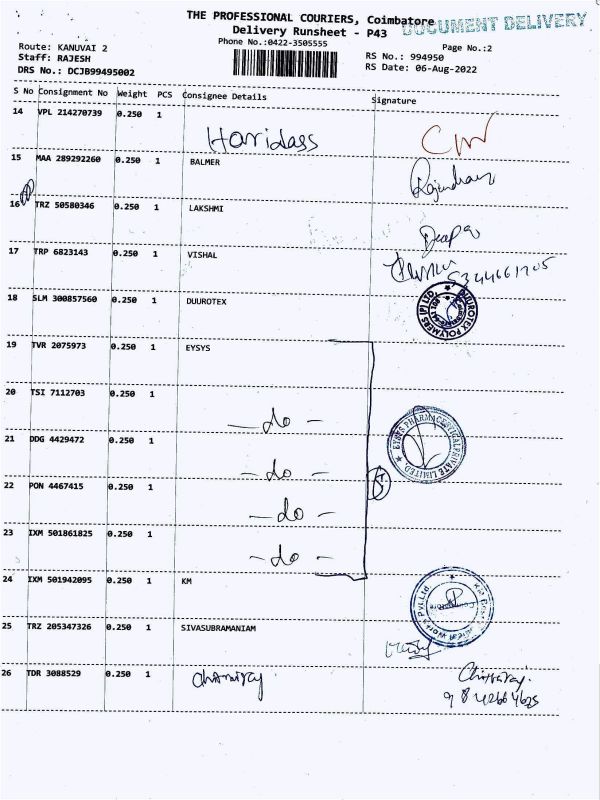 THE PROFESSIONAL COURIERS, Coimbatore
DOCUMENT DELIVERY
Delivery Runsheet - P43
Phone No.:0422-3505555
Page No.:2
Route: KANUVAI 2
Staff: RAJESH
RS No.: 994950
DRS No.: DCJB99495002
RS Date: 06-Aug-2022
S No Consignment No Weight PCS Consignee Details Signature
14 VPL 214270739 0.250 1
Haridass
15 MAA 289292260 0.250 1 BALMER
Rajendran
16 TRZ 50580346 0.250 1 LAKSHMI
Deepa
17 TRP 6823143 0.250 1 VISHAL
18 SLM 300857560 0.250 1 DUUROTEX
DUUROTEX POLYMERS (P) LTD.
19 TVR 2075973 0.250 1 EYSYS
20 TSI 7112703 0.250 1
- do -
21 DDG 4429472 0.250 1
EYSYS PHARMACEUTICAL PRIVATE LIMITED
- do -
22 PON 4467415 0.250 1
- do -
23 IXM 501861825 0.250 1
- do -
24 IXM 501942095 0.250 1 KM
25 TRZ 205347326 0.250 1 SIVASUBRAMANIAM
26 TDR 3088529 0.250 1